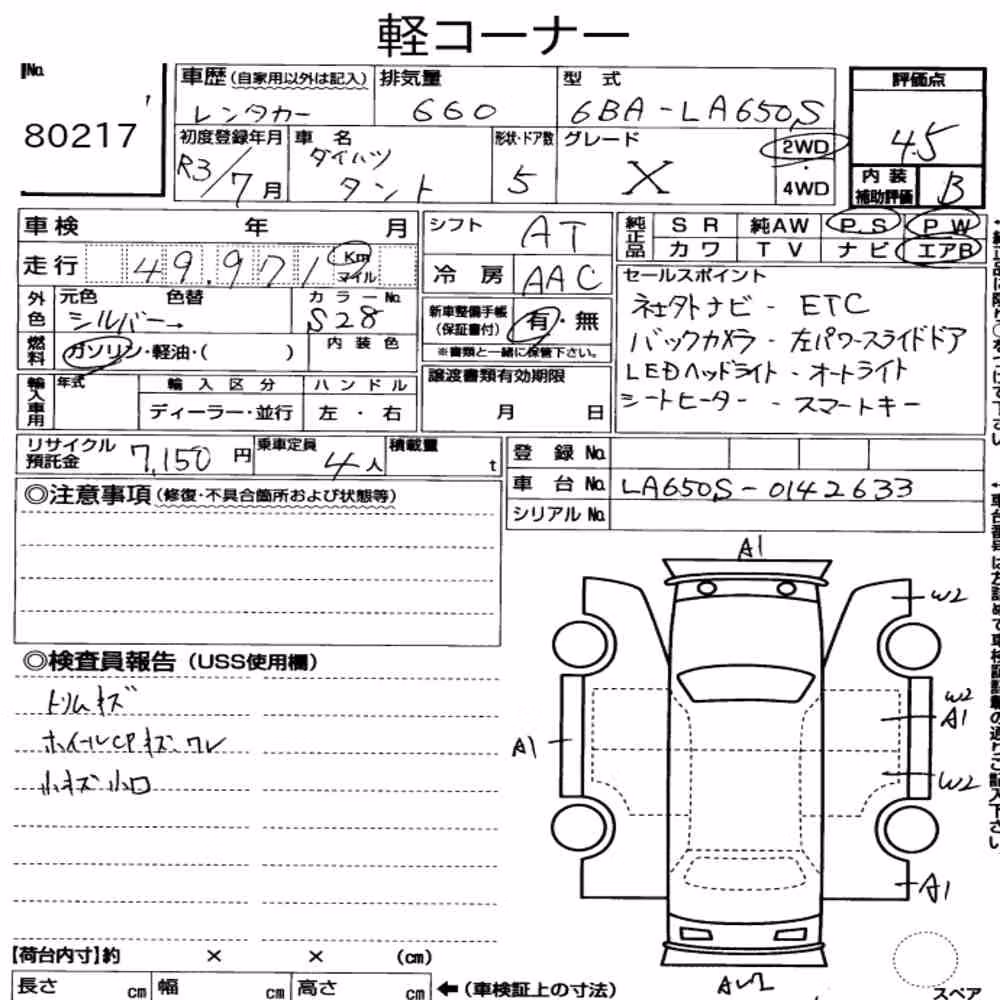 軽コーナー
No. 80217
車歴 (自家用以外は記入) レンタカー
排気量 660
型式 6BA-LA650S
評価点 4.5
初度登録年月 R3/7月
車名 ダイハツ タント
形状・ドア数 5
グレード X
2WD・4WD
内装補助評価 B
車検 年 月
走行 49.971 Km マイル
シフト AT
冷房 AAC
純正品 SR 純AW P.S P W
カワ TV ナビ エアB
外色 元色 色替 シルバー→
カラーNo. S28
燃料 ガソリン・軽油・( )
内装色
新車整備手帳(保証書付) 有・無
※書類と一緒に保管下さい。
セールスポイント
ネェタトナビ - ETC
バックカメラ - 左パワースライドドア
LEDヘッドライト - オートライト
シートヒーター - スマートキー
輸入車用 年式 輸入区分 ハンドル
ディーラー・並行 左・右
譲渡書類有効期限
月 日
リサイクル預託金 7,150円
乗車定員 4人
積載量 t
登録No.
車台No. LA650S-0142633
シリアルNo.
◎注意事項(修復・不具合箇所および状態等)
◎検査員報告(USS使用欄)
トリムキズ
ホイールCPキズ ワレ
小キズ 小凹
A1
W2
W2
A1
A1
W2
A1
スペア
【荷台内寸】約 × × (cm)
長さ cm 幅 cm 高さ cm ←(車検証上の寸法)